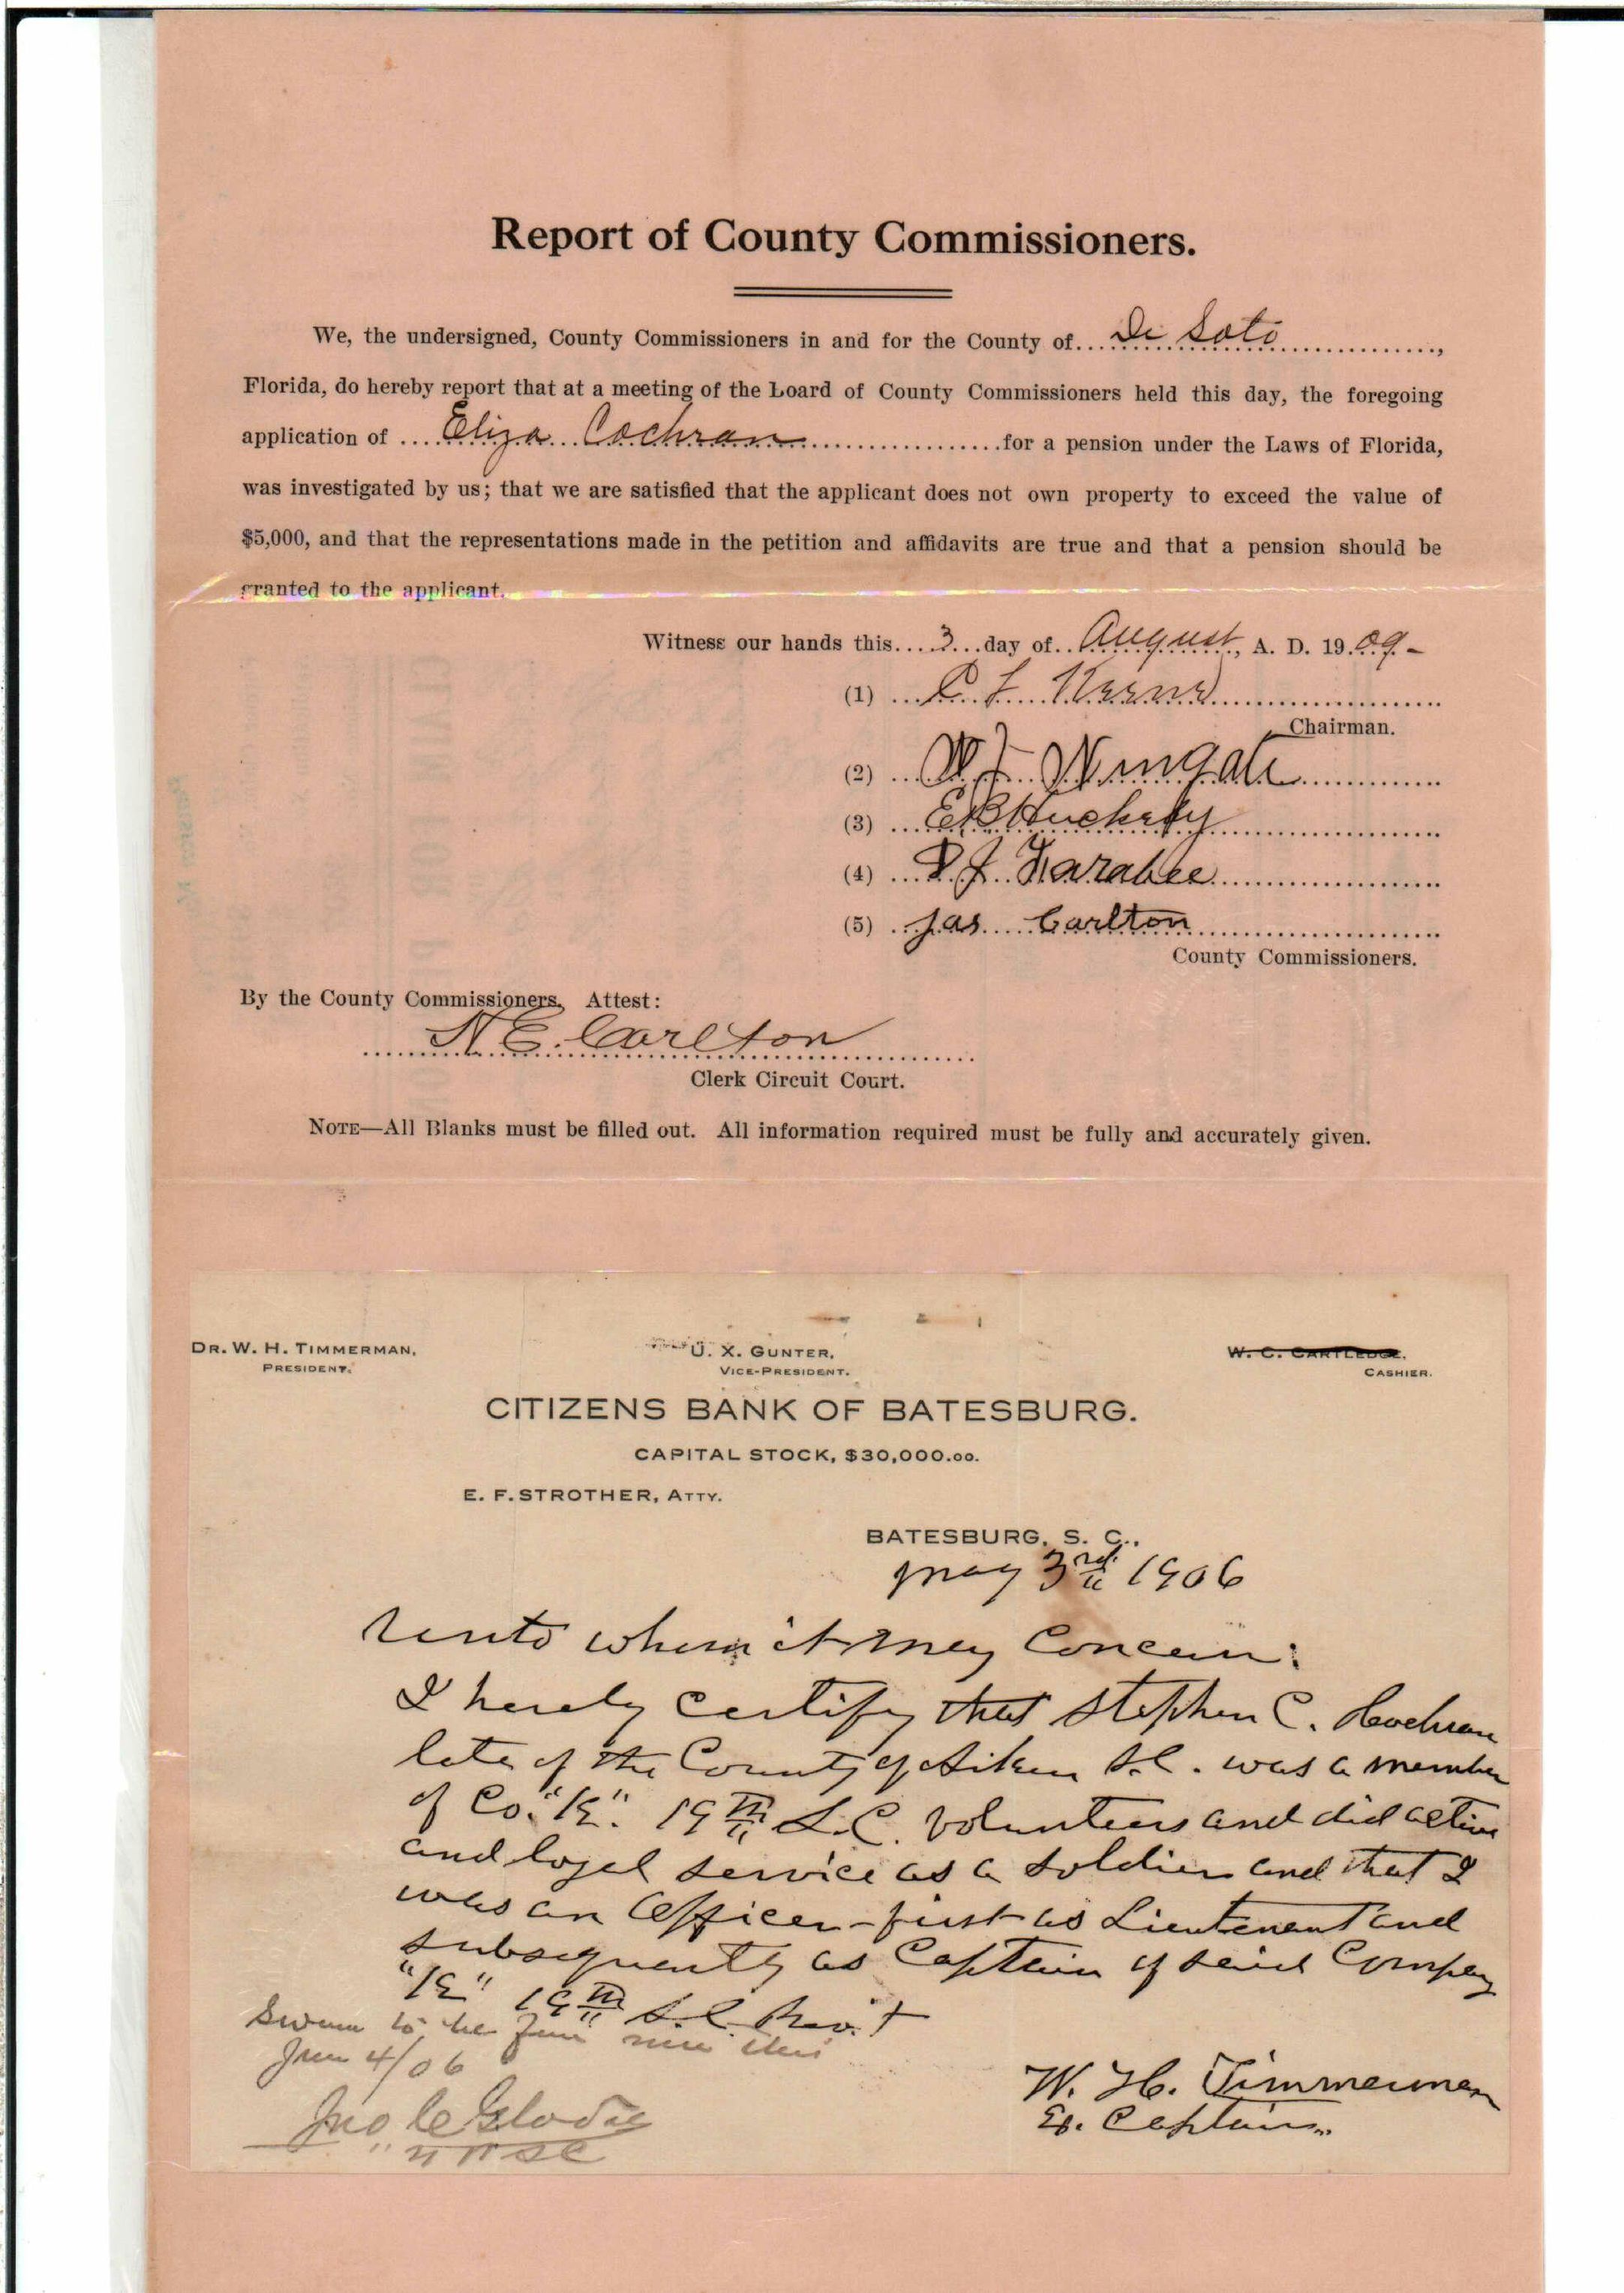 Report of County Commissioners.
We, the undersigned, County Commissioners in and for the County of....De Soto....,
Florida, do hereby report that at a meeting of the Loard of County Commissioners held this day, the foregoing
application of ....Eliza Cochran....for a pension under the Laws of Florida,
was investigated by us; that we are satisfied that the applicant does not own property to exceed the value of
$5,000, and that the representations made in the petition and affidavits are true and that a pension should be
granted to the applicant.
Witness our hands this....3...day of..August, A. D. 19.09.-
(1)
Chairman.
(2) W. J. Wingate
(3) E B Huckeby
(4) P J Farabee
(5) Jas Carlton
County Commissioners.
By the County Commissioners, Attest:
N E. Carlton
Clerk Circuit Court.
NOTE—All Blanks must be filled out. All information required must be fully and accurately given.
DR. W. H. TIMMERMAN, U. X. GUNTER, W. C. CARTLEDGE,
PRESIDENT. VICE-PRESIDENT. CASHIER.
CITIZENS BANK OF BATESBURG.
CAPITAL STOCK, $30,000.00.
E. F. STROTHER, ATTY.
BATESBURG, S. C.,
May 3rd 1906
Unto whom it may Concern:
I hereby certify that Stephen C. Cochran
late of the County of Aiken S.C. was a member
of Co. "K". 19th S.C. Volunteers and did active
and loyal service as a soldier and that I
was an Officer - first as Lieutenant and
subsequently as Captain of said Company
"K" 19th S.C. Regt
Sworn to before me this
June 4/06
W. H. Timmerman
Ex. Captain.
Jno C